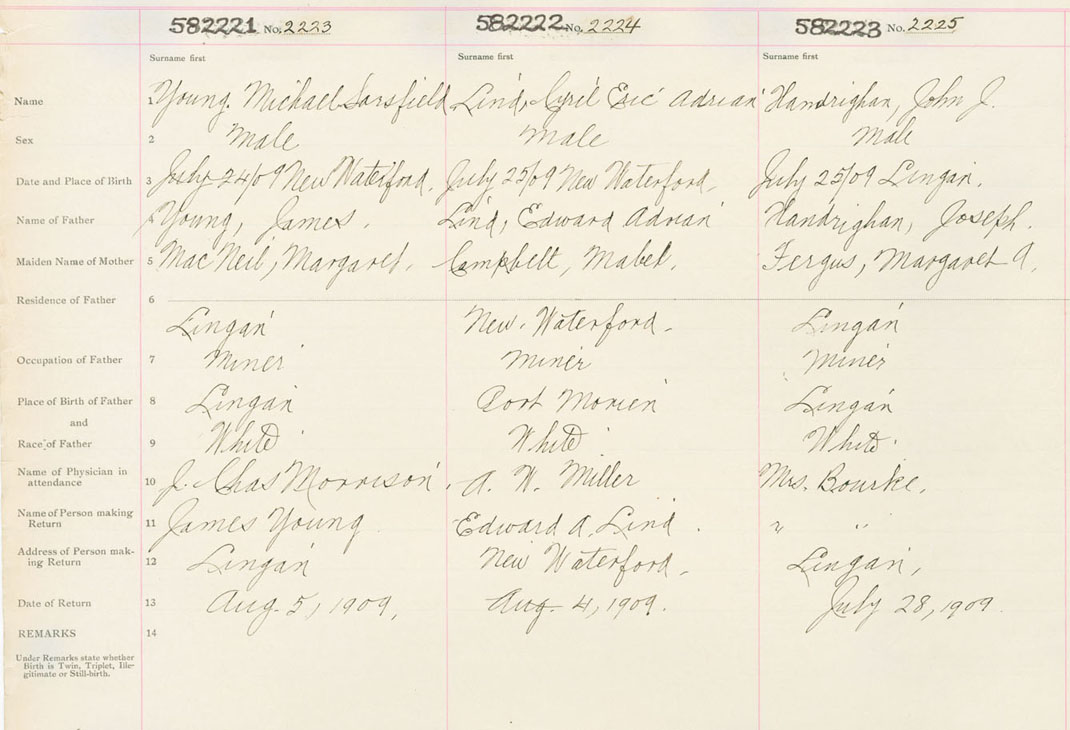 582221 No. 2223 582222 No. 2224 582223 No. 2225
Surname first Surname first Surname first
Name 1 Young. Michael Sarsfield Lind, Cyril Eric Adrian Handrighan, John J.
Sex 2 Male Male Male
Date and Place of Birth 3 July 24/09 New Waterford. July 25/09 New Waterford. July 25/09 Lingan.
Name of Father 4 Young, James. Lind, Edward Adrian Handrighan, Joseph.
Maiden Name of Mother 5 MacNeil, Margaret. Campbell, Mabel. Fergus, Margaret A.
Residence of Father 6
Lingan New. Waterford. Lingan
Occupation of Father 7 Miner Miner Miner
Place of Birth of Father 8 Lingan Port Morien Lingan
and
Race of Father 9 White White White
Name of Physician in
attendance 10 J. Chas Morrison. A. W. Miller Mrs. Bourke.
Name of Person making
Return 11 James Young Edward A. Lind. " "
Address of Person mak-
ing Return 12 Lingan New Waterford. Lingan,
Date of Return 13 Aug. 5, 1909, Aug. 4, 1909. July 28, 1909.
REMARKS 14
Under Remarks state whether
Birth is Twin, Triplet, Ille-
gitimate or Still-birth.